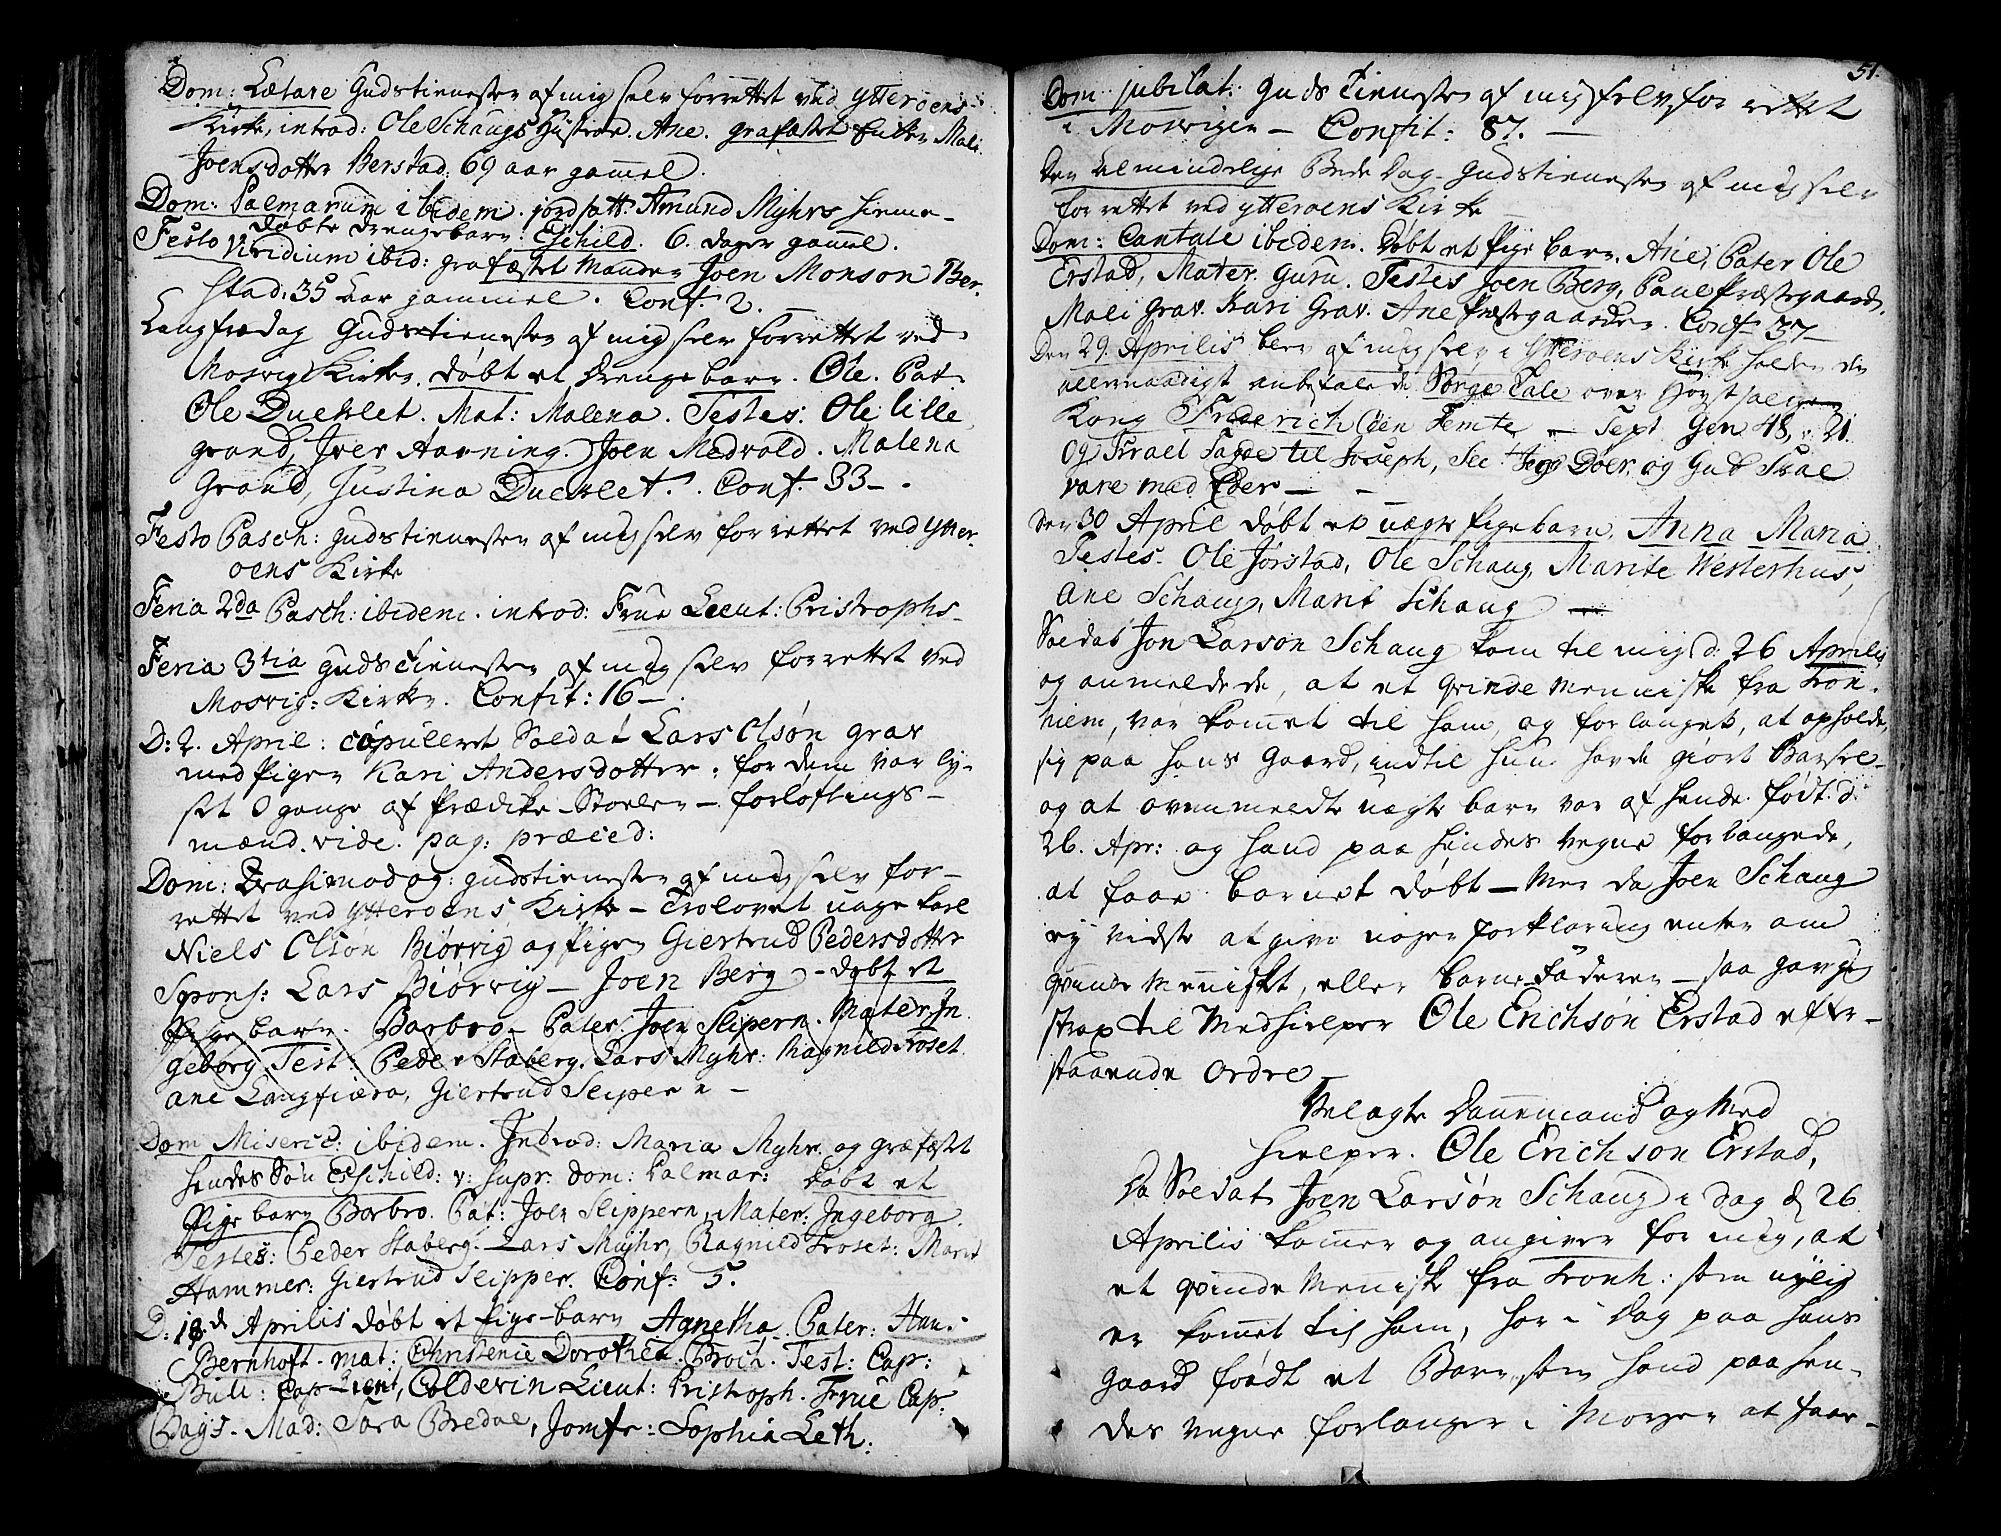 Dom: Lætare Gudstienesten af mig selv forrettet ved Ytteroens
Kirke, introd: Ole Schaugs Hustroe. Ane. grafæstet Enken Mali
Joensdotter Berstad: 69 aar gamel.
Dom: Palmarum ibidem. jordsatt. Amund Myhrs hieme-
døbte drengebarn: Eschild. 6. dager gamel.
Festo Viridium ibid: grafæstet Manden Joen Monson Ber-
stad: 35 aar gammel. Conf. 2.
Langfredag Gudstienesten af mig selv forrettet ved
Mosvig Kirke. døbt et Drengebarn. Ole. Pat.
Ole Duewlet. Mat: Malena. Testes: Ole Lille
grand, Iver Aarning. Joen Medvold. Malena
Grand, Justina Duewlet. Conf. 33-.
Festo Pasch: Gudstienesten af mig selv forrettet ved Ytter-
oens Kirke
Feria 2da Pasch: ibidem. introd: Frue Lieut: Pristrophs-
Feria 3tia Guds Tienesten af mig selv forrettet ved
Mosvig: Kirke. Confit: 16-.
D: 2. April: copuleret Soldat Lars Olsøn Grav
med Pigen Kari Andersdotter. for dem var ly-
set 3 gange af Prædike-Stoelen - forloftings-
mænd. vide. pag: præced:
Dom: Qvasimodog: gudstienesten af mig selv for-
rettet ved Ytteroens Kirke - Trolovet unge karl
Niels Olsøn Biørvig og Pigen Giertrud Pedersdotter
Spons: Lars Biørvig - Joen Berg - døbt et
Pige barn. Barbro - Pater. Joen Slipern. Mater In-
geborg. Test: Peder Staberg. Lars Myhr: Ragnild Troset
Ane Langfiæra, Giertrud Slipern -
Dom Misericd: ibidem. Introd: Maria Myhr. og græfæstet
hendes Søn Eschild: v: supr: Dom: Palmar: døbt et
Pige barn Barbro. Pat: Joen Slippern, Mater: Ingeborg.
Testes: Peder Staberg. Lars Myhr, Ragnild Troset: Marit
Hammer: Giertrud Slipper. Conf: 5.
D: 18d Aprilis døbt et pige-barn Agnetha. Pater: Han.
Bernhoft - mat: Christenie Dorothea Broch. Test: Cap:
Bull: Cap Lieut, Coldevin Lieut: Pristroph. Frue Cap:
Bays. Mad: Sara Bredal, Jomfr: Sophia Leth:
51.
Dom jubilat: Guds Tienesten af mig selv forrettet
i Mosvigen - Confit: 87. -
Den Almindelige Bede Dag - Gudstienesten af mig selv
forrettet ved Ytteroens Kirke
Dom: Cantate ibidem. Døbt et Pige barn. Ane, Pater Ole
Erstad, Mater. Guru. Testes Joen Berg, Paul Præstegaard,
Mali Grav. Kari Grav. Ane Præstegaarden. Conf: 37-
Den 29. Aprilis blev af mig selv i Ytteroens Kirke holden den
allernaadigst anbefalede Sorge Tale over Høystsalige
Kong Friderich den Femte - Text Gen. 48, v: 21.
Og Israel sagde til Joseph, See Jeg Døer, og Gud skal
være med Eder -
Den 30 April døbt et uægte pigebarn, Anna Maria.
Testes. Ole Jørstad, Ole Schaug, Marite Westerhus,
Ane Schaug, Marit Schaug -
Soldat Jon Larson Schaug kom til mig d: 26 Aprilis
og anmeldede, at et qvinde Menniske fra Tron-
hiem, var komet til ham, og forlanget, at opholde
sig paa hans Gaard, indtil hun havde giort Barsel -
og at ovenmeldte uægte barn var af hende født d:
26. Apr: og hand paa hendes vegne forlangede,
at faae barnet døbt - Men da Joen Schaug
ey vidste at give nogen forklaring enten om
qvinde Mennisket, eller barne Faderen - saa gav jeg
strax til Medhielper Ole Erichsøn Erstad efter-
staaende Ordre -
Velagte Dannemand og Med
hielper. Ole Erichson Erstad,
Da Soldat Joen Larsøn Schaug i dag d 26
Aprilis kommer og angiver for mig, at
et qvinde Menniske fra Tronh: som nylig
er komet til ham, har i Dag paa hans
Gaard født et Barn, som hand paa hen-
des vegne forlanger i Morgen at faae -